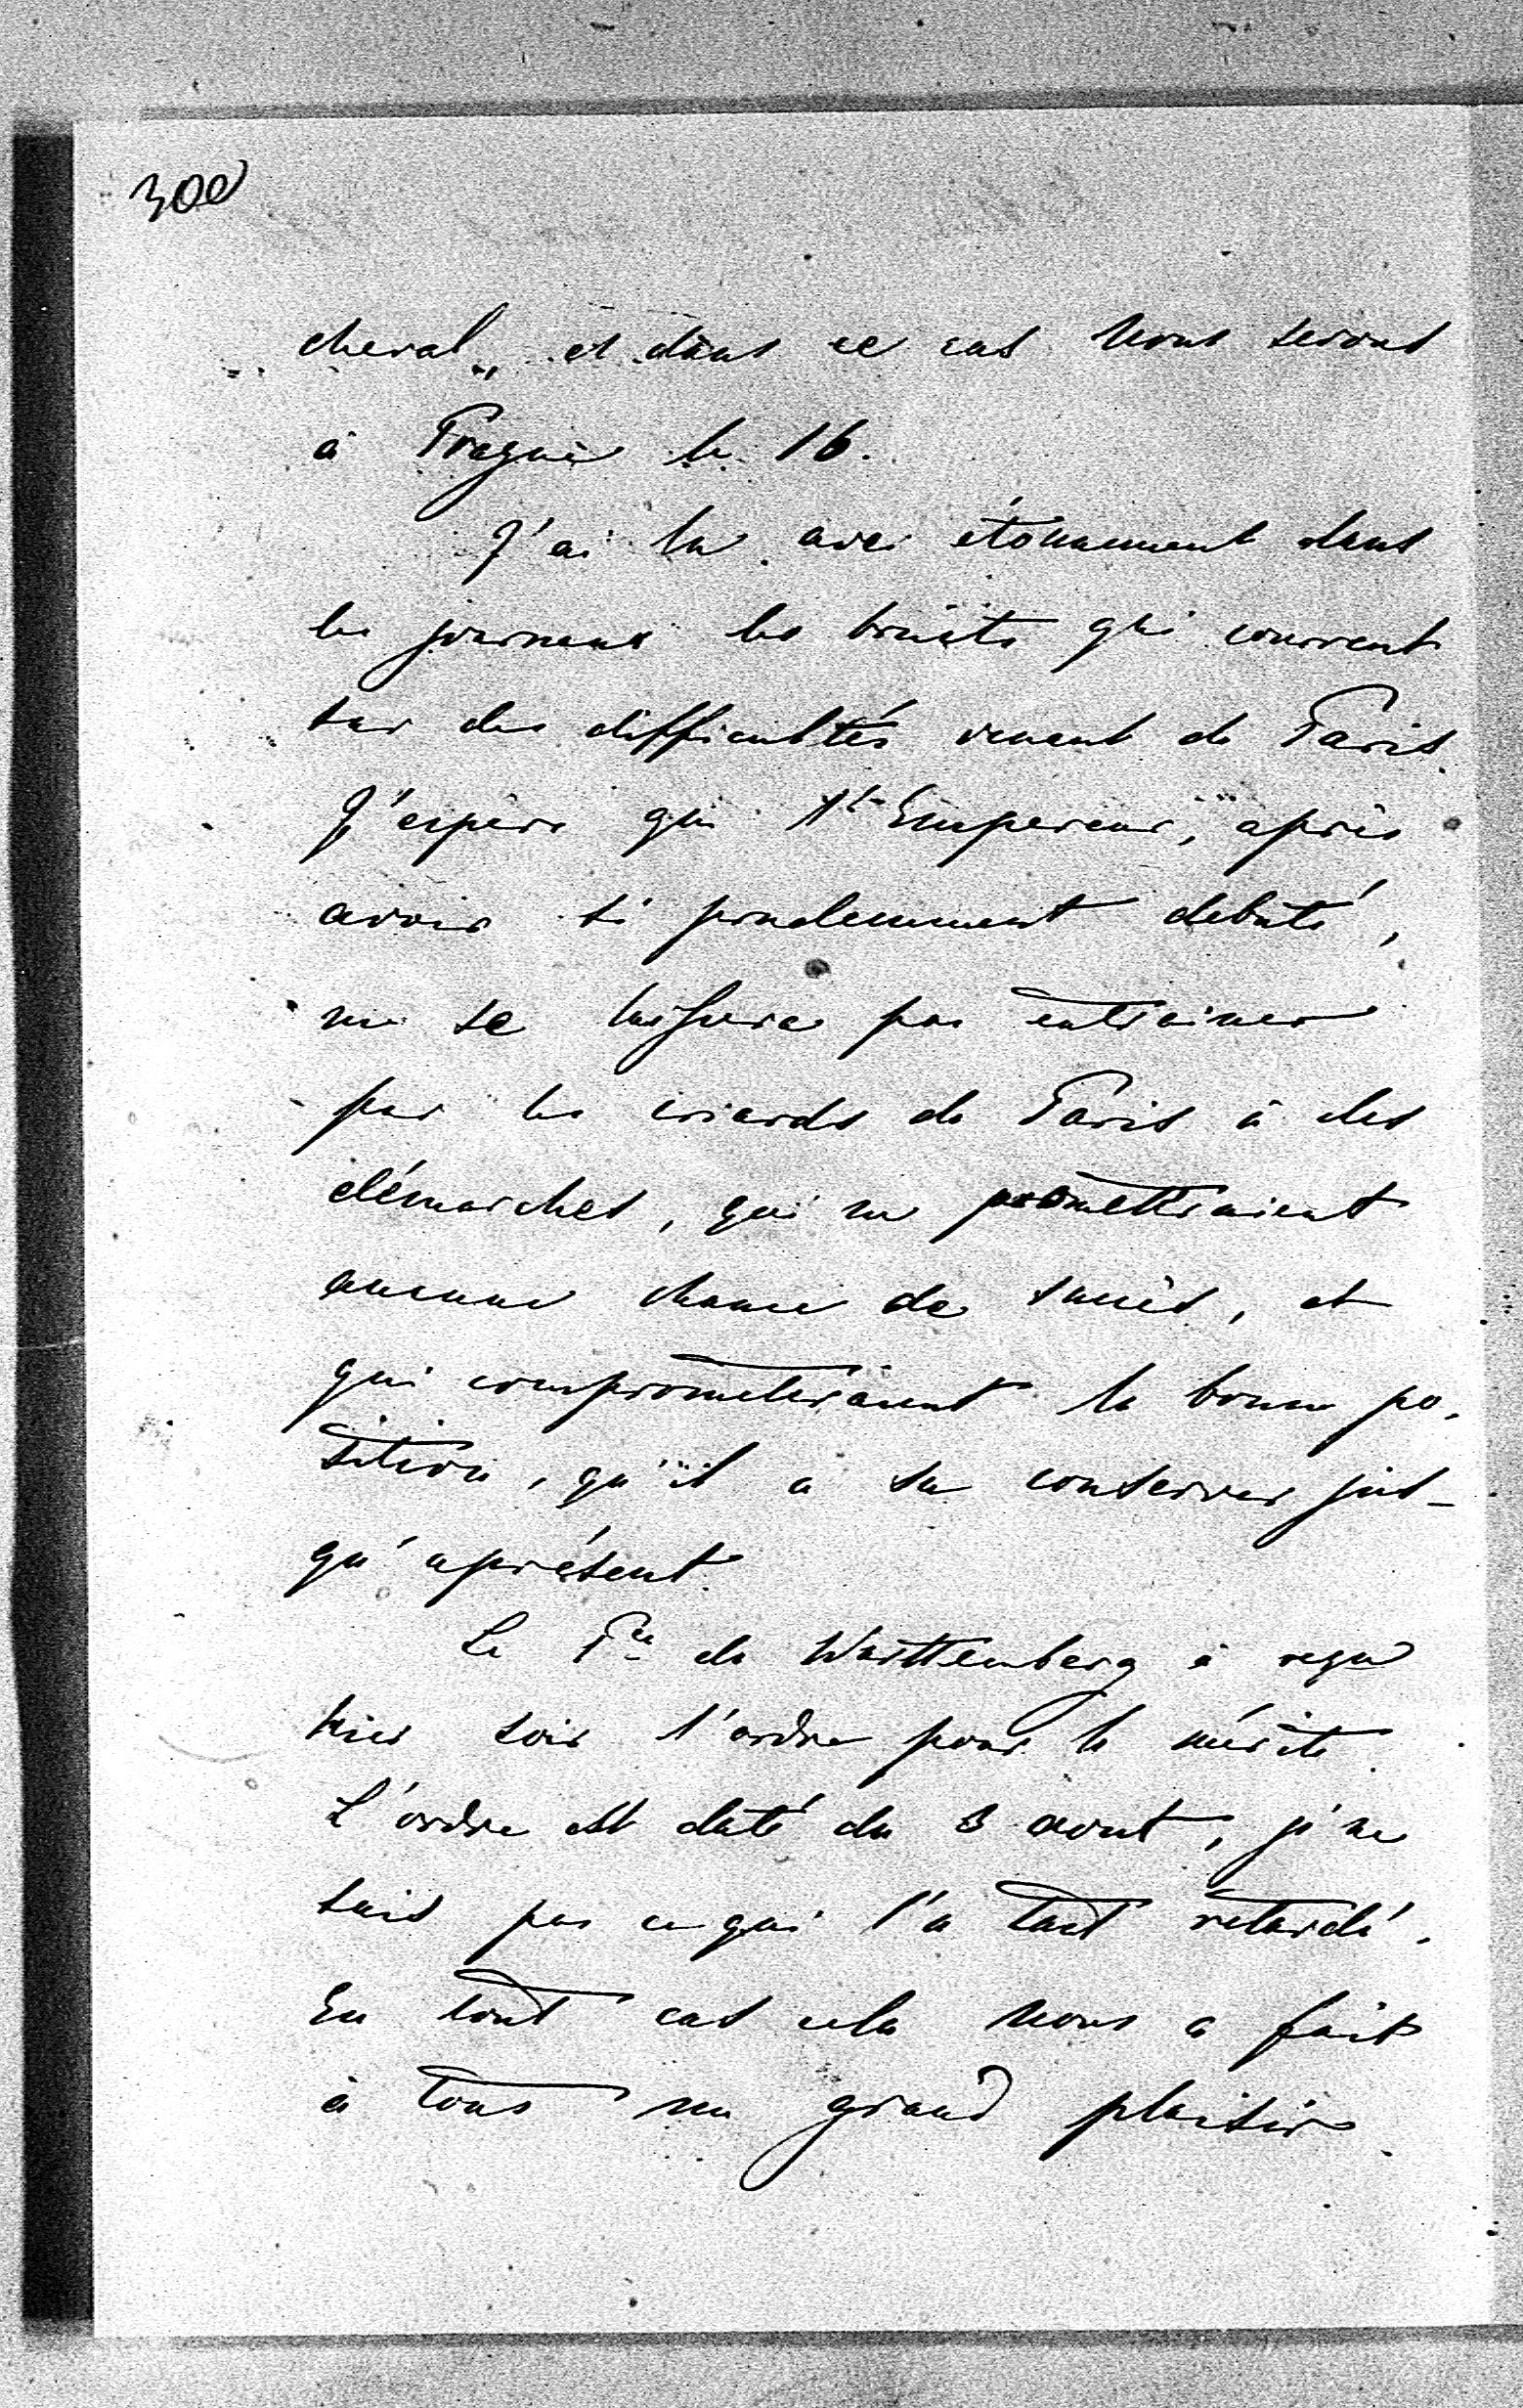 300
cheval„ et dans ce cas nous serons
à Prague le 16.
J'ai lu avec étonnement dans
les journeaux les bruits qui courrent
sur des difficultés venant de Paris.
J'espère que l'Empereur, après
avoir si prudemment debuté,
ne se laissera pas entrainer
par les criards de Paris à des
démarches, qui ne promettraient
aucune chance de succès, et
qui comprometteraient la bonne po-
sition, qu'il a su conserver jus-
qu'aprésent.
Le Pce de Württemberg a reçu
hier soir l'ordre pour le mérite.
L'ordre est daté du 3 aout, je ne
sais pas ce qui l'a tant retardé.
En tout cas cela nous a fait
à tous un grand plaisir.